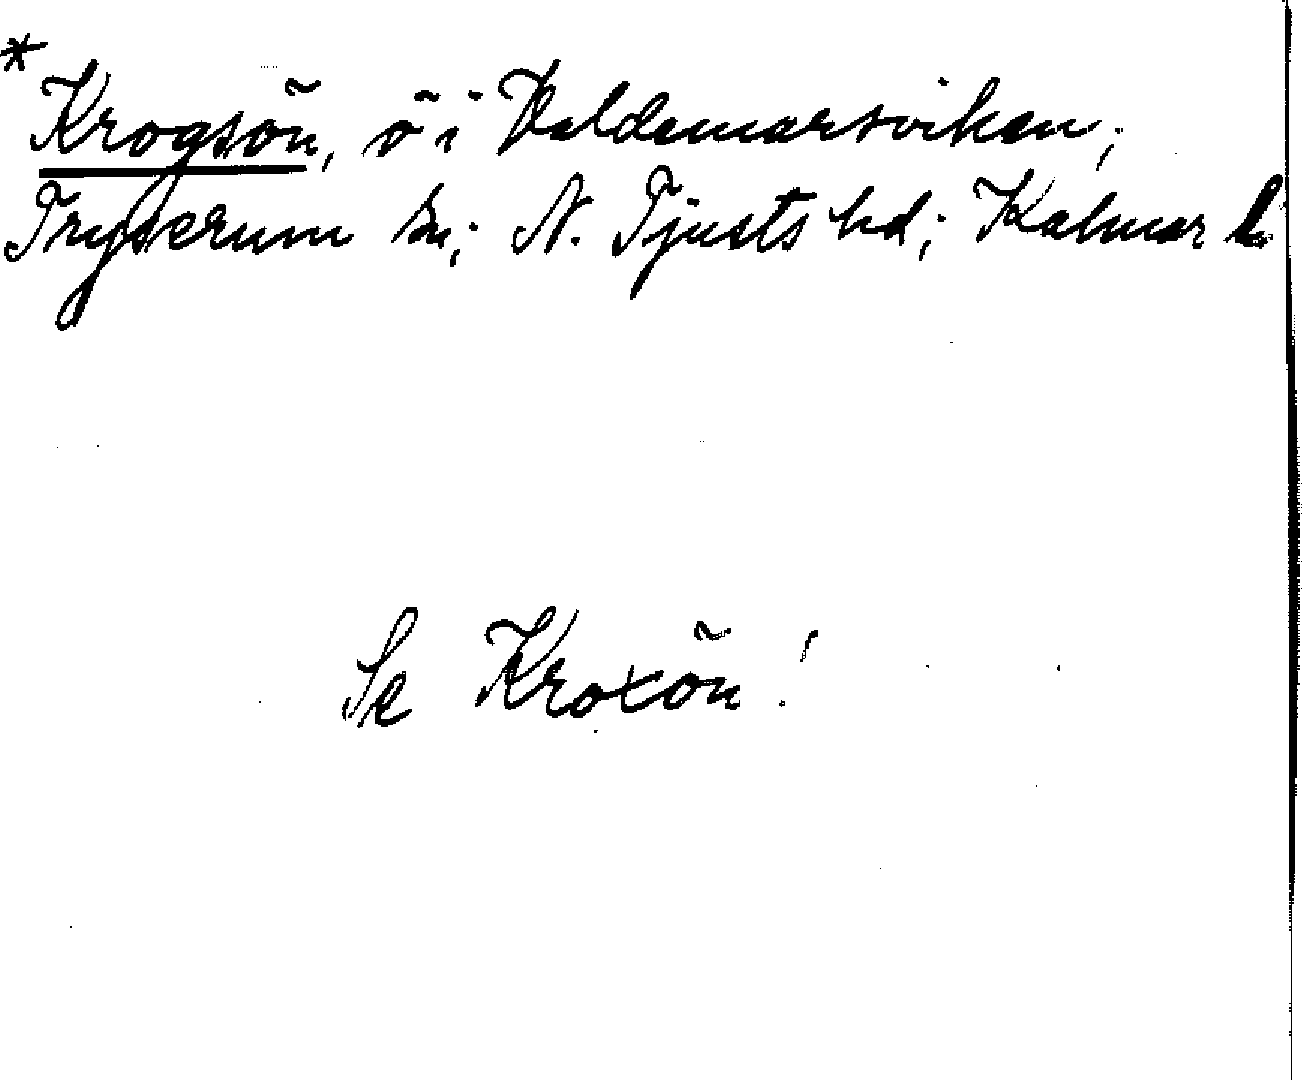 *
Krogsön, ö i Valdemarsviken;
Tryserum sn; N. Tjusts hd; Kalmar l.
Se Kroxön!